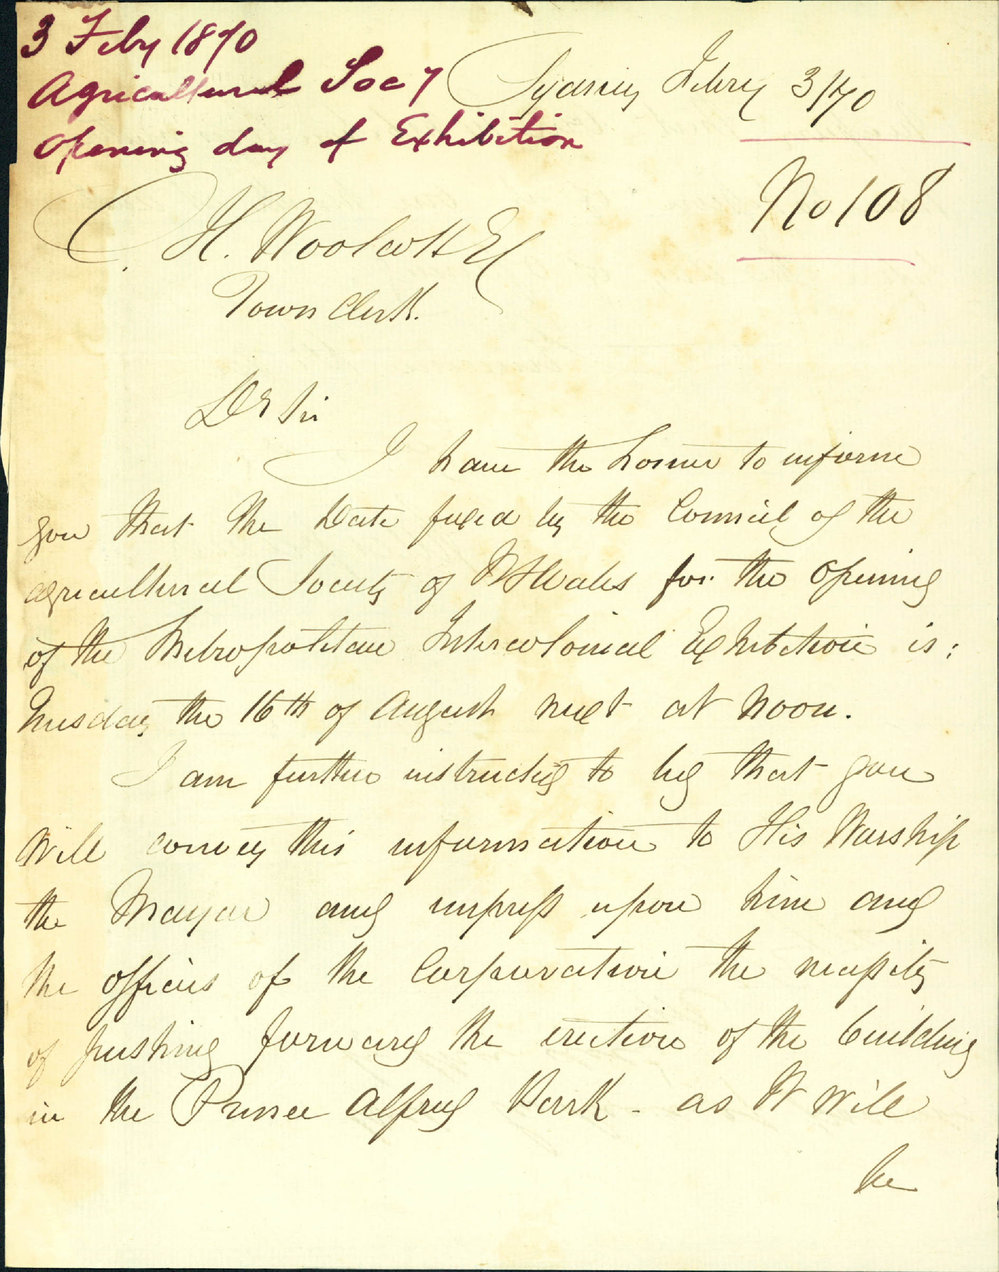 3 Feby 1870
Agricultural Socy
Opening day of Exhibition
Sydney Febry 3/70
No 108
C. H. Woolcott Es
Town Clerk.
Dr Sir
I have the honor to inform
you that the Date fixed by the Council of the
Agricultural Society of NSWales for the Opening
of the Metropolitan Intercolonial Exhibition is:
Tuesday the 16th of August next at Noon.
I am further instructed to beg that you
will convey this information to His Worship
the Mayor and impress upon him and
the officers of the Corporation the necessity
of pushing forward the erection of the building
in the Prince Alfred Park - as it will
be